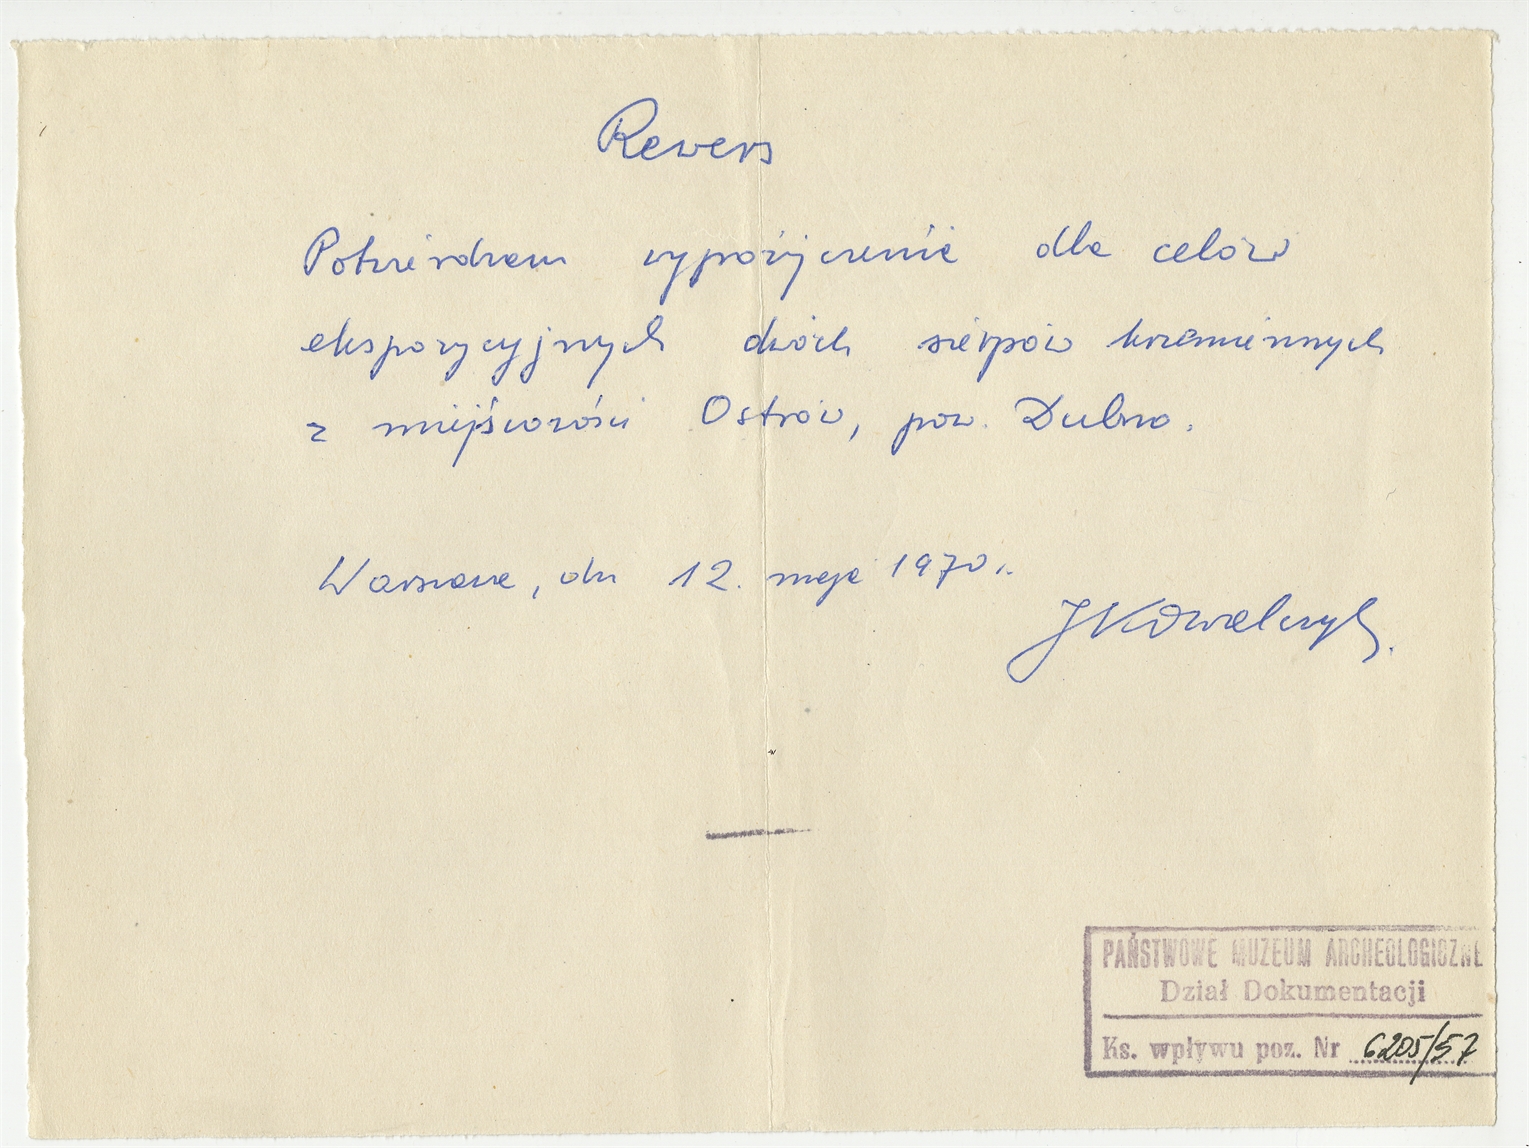 Rewers
Potwierdzam wypożyczenie dla celów
ekspozycyjnych dwóch sierpów krzemiennych
z miejscowości Ostrów, pow. Dubno.
Warszawa, dn 12. maja 1970 r.
JKowalczyk.
PAŃSTWOWE MUZEUM ARCHEOLOGICZNE
Dział Dokumentacji
Ks. wpływu poz. Nr 6205/57